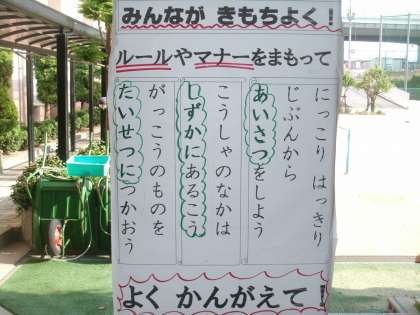 みんなが きもちよく!
ルールやマナーをまもって
にっこり はっきり
じぶんから
あいさつをしよう
こうしゃのなかは
しずかにあるこう
がっこうのものを
たいせつにつかおう
よく かんがえて!